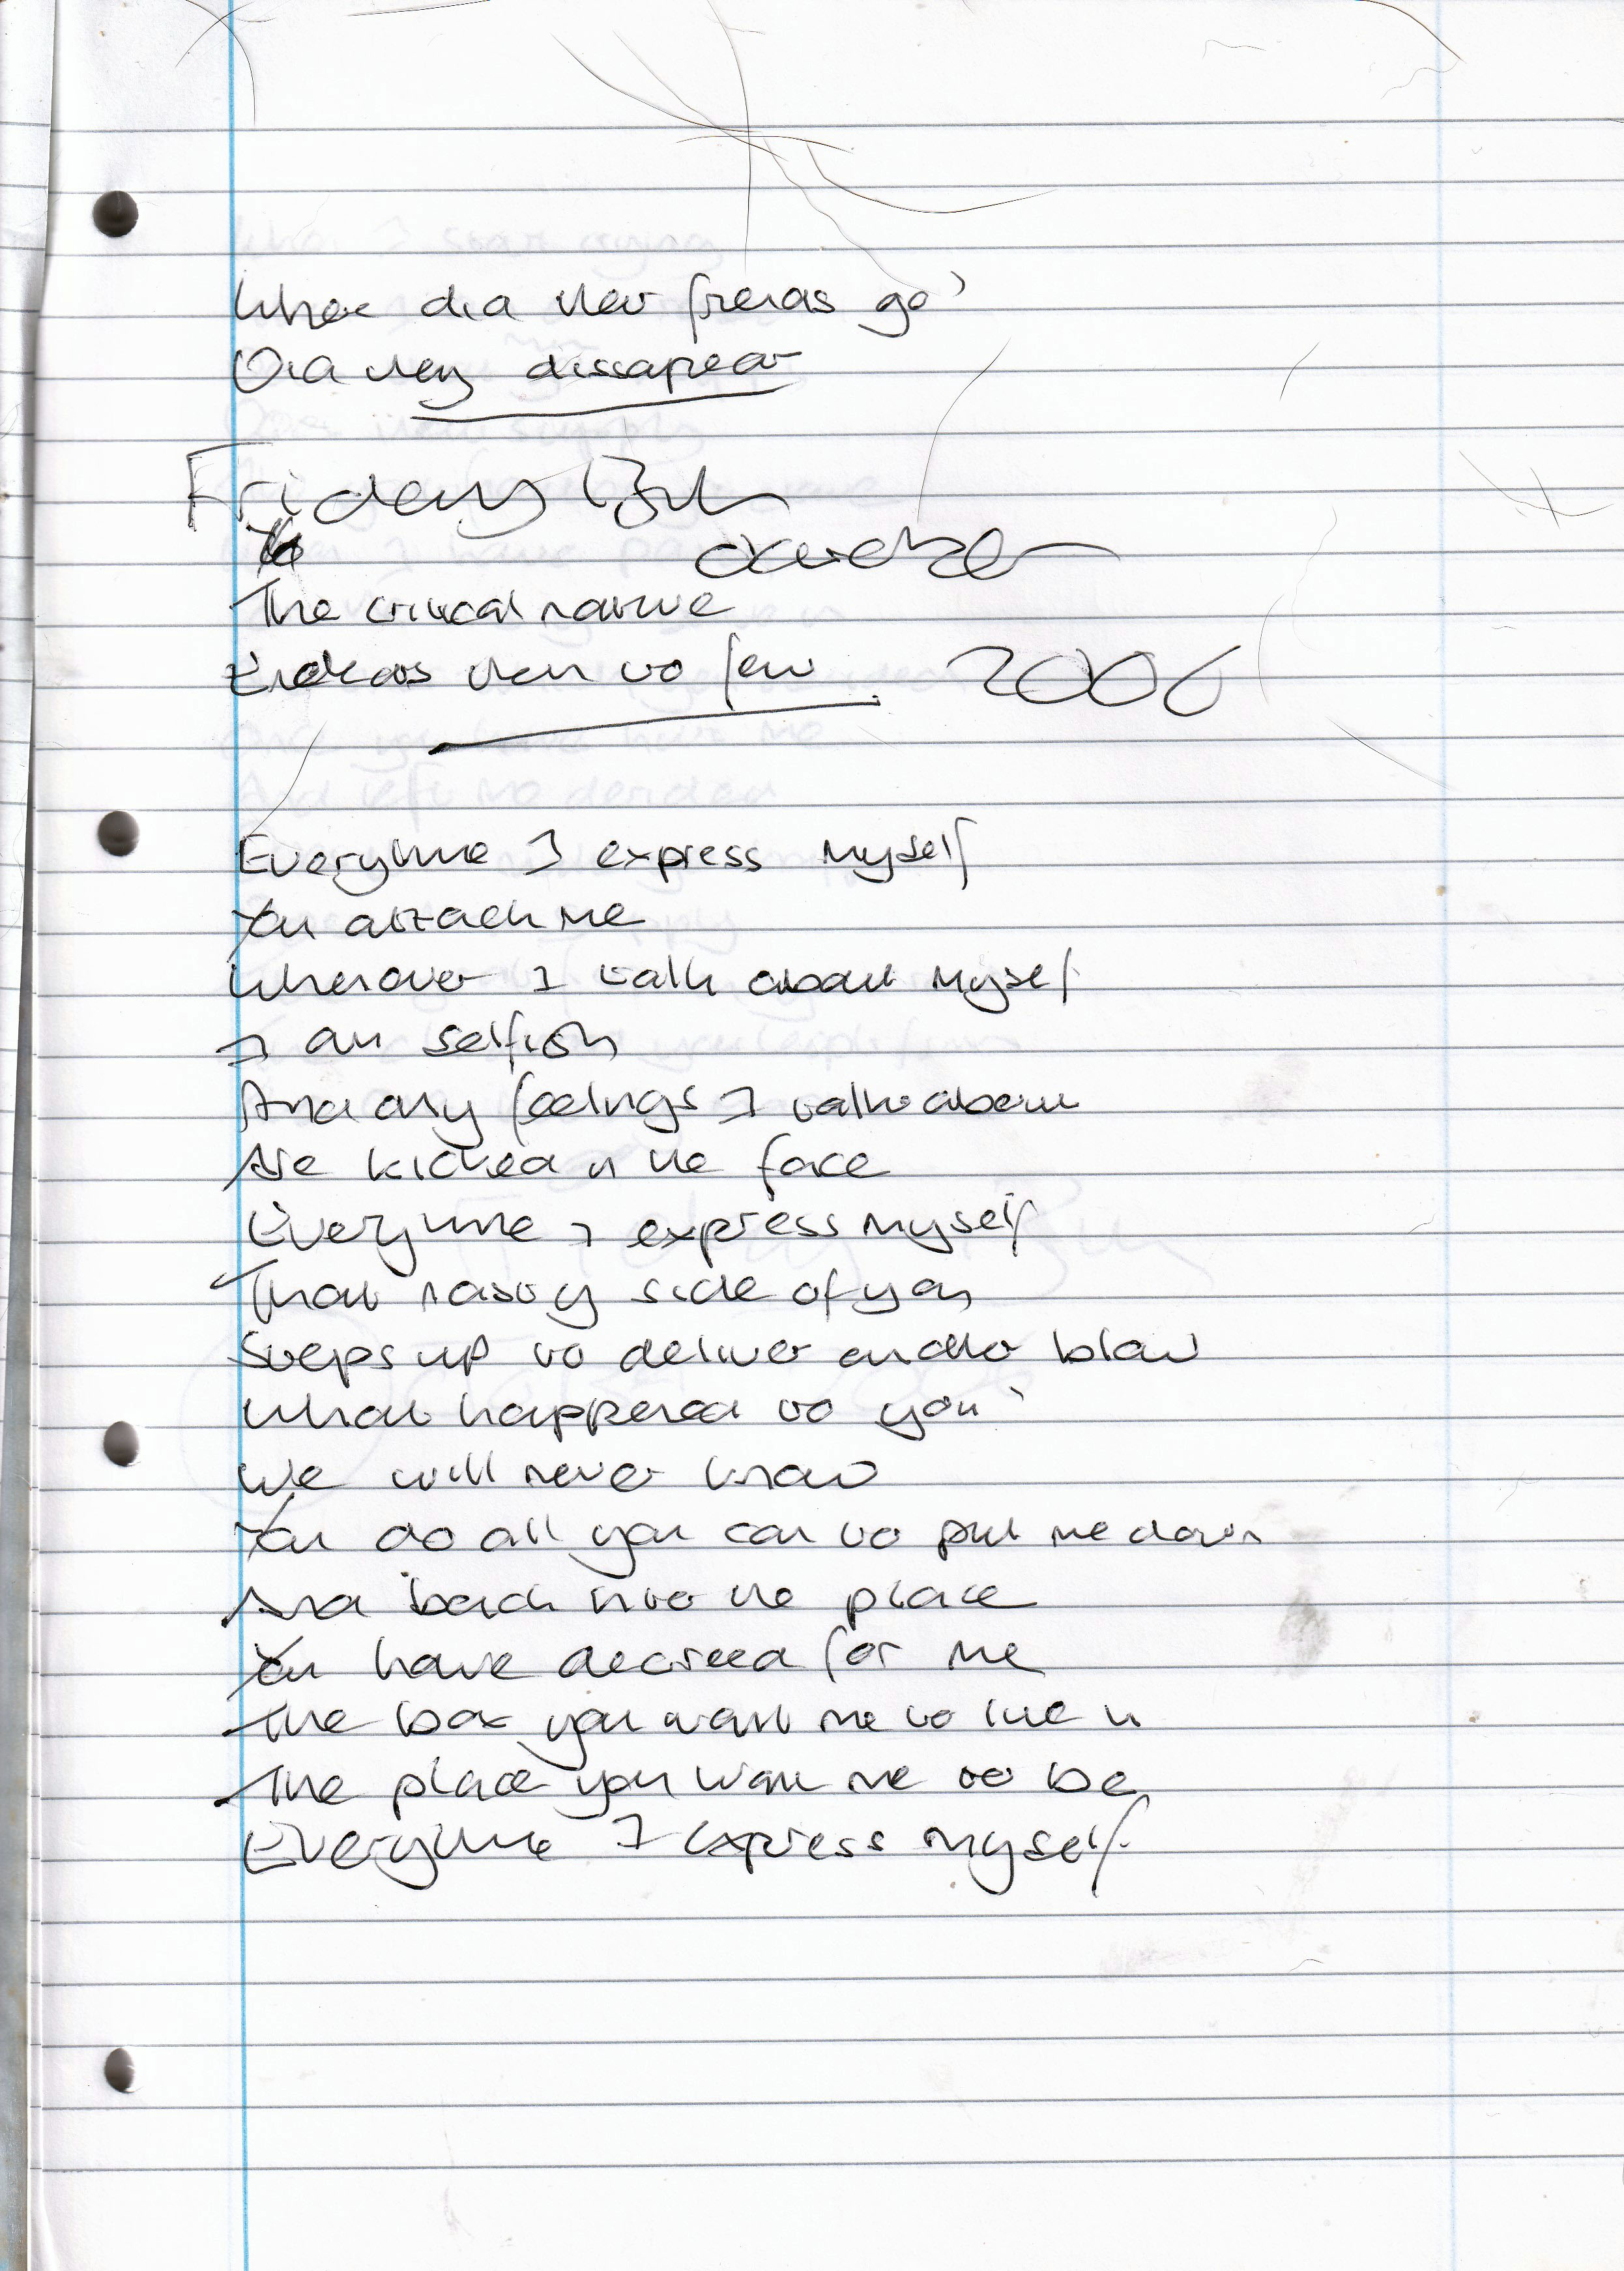 Where did their friends go?
Did they dissapear
Friday 13th
October
The critical
them to few
2006
Everytime I express myself
You attack me
Whenever I talk about myself
I am selfish
And any feelings I talk about
Are kicked in the face
Everytime I express myself
That nasty side of you
Steps up to deliver another blow
What happened to you?
We will never know
You do all you can to put me down
And back into the place
You have decreed for me
The box you want me to live in
The place you want me to be
Everytime I express myself.